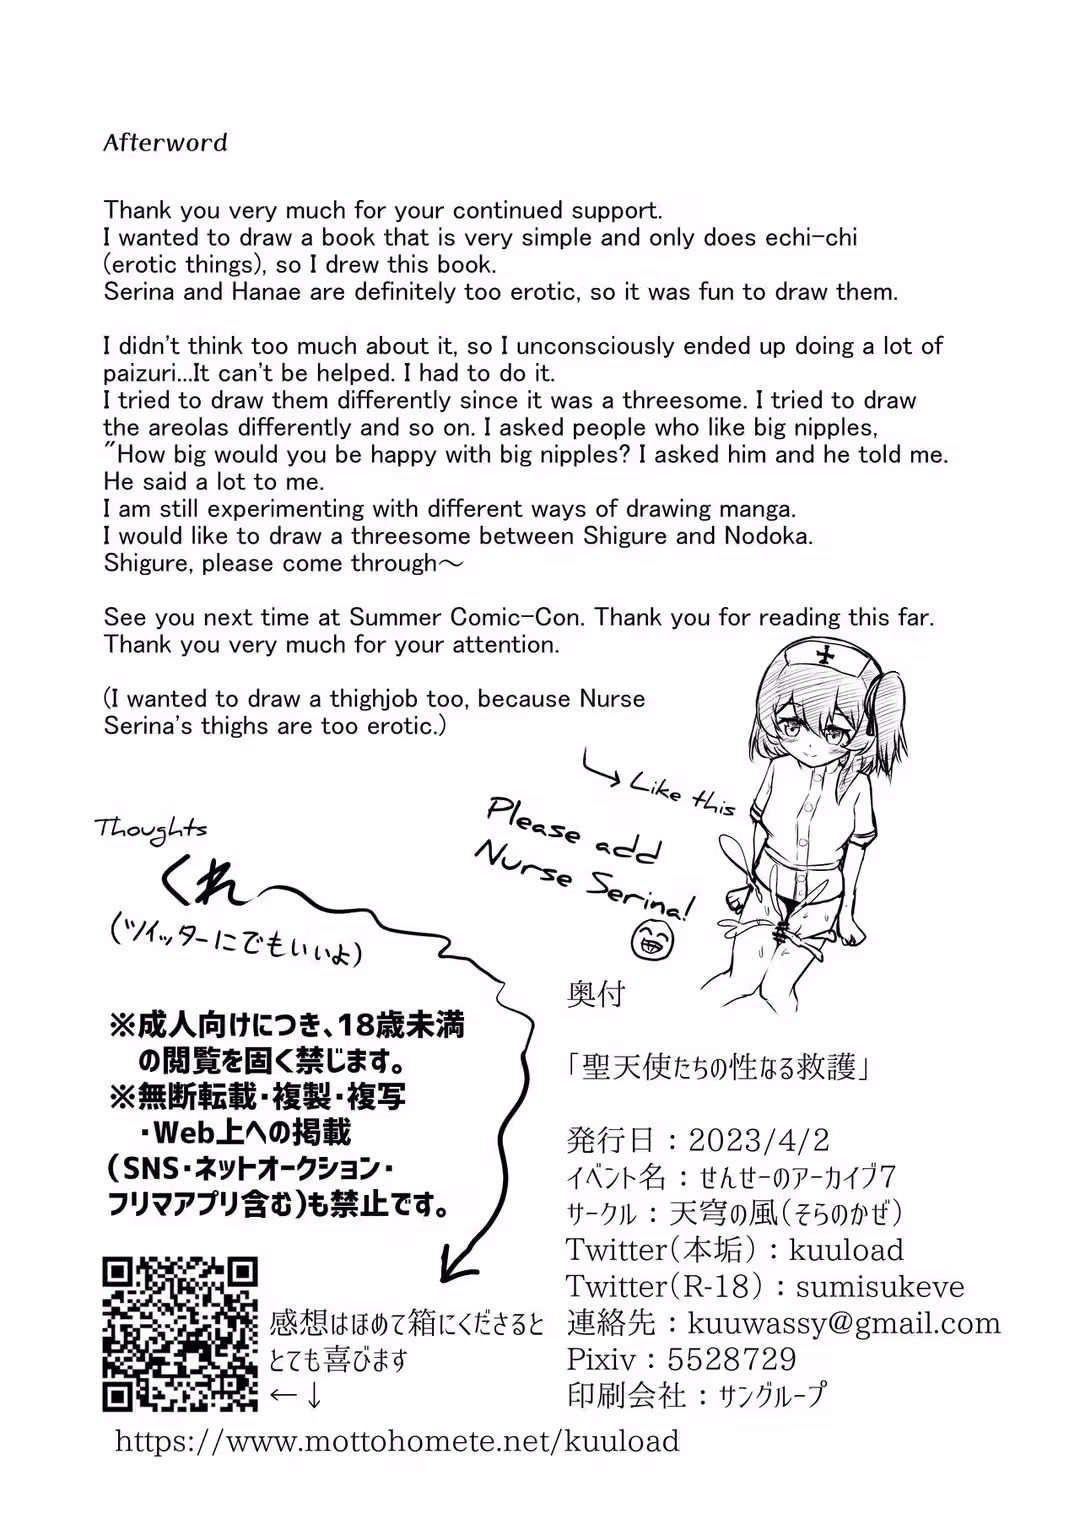 Afterword
Thank you very much for your continued support.
I wanted to draw a book that is very simple and only does echi-chi
(erotic things), so I drew this book.
Serina and Hanae are definitely too erotic, so it was fun to draw them.
I didn't think too much about it, so I unconsciously ended up doing a lot of
paizuri...It can't be helped. I had to do it.
I tried to draw them differently since it was a threesome. I tried to draw
the areolas differently and so on. I asked people who like big nipples,
"How big would you be happy with big nipples? I asked him and he told me.
He said a lot to me.
I am still experimenting with different ways of drawing manga.
I would like to draw a threesome between Shigure and Nodoka.
Shigure, please come through～
See you next time at Summer Comic-Con. Thank you for reading this far.
Thank you very much for your attention.
(I wanted to draw a thighjob too, because Nurse
Serina's thighs are too erotic.)
Like this
Please add
Nurse Serina!
Thoughts
くれ
(ツイッターにでもいいよ)
※成人向けにつき、18歳未満
の閲覧を固く禁じます。
※無断転載・複製・複写
・Web上への掲載
(SNS・ネットオークション・
フリマアプリ含む)も禁止です。
感想はほめて箱にくださると
とても喜びます
←↓
https://www.mottohomete.net/kuuload
奥付
「聖天使たちの性なる救護」
発行日：2023/4/2
イベント名：せんせーのアーカイブ7
サークル：天穹の風(そらのかぜ)
Twitter(本垢)：kuuload
Twitter(R-18)：sumisukeve
連絡先：kuuwassy@gmail.com
Pixiv：5528729
印刷会社：サングループ